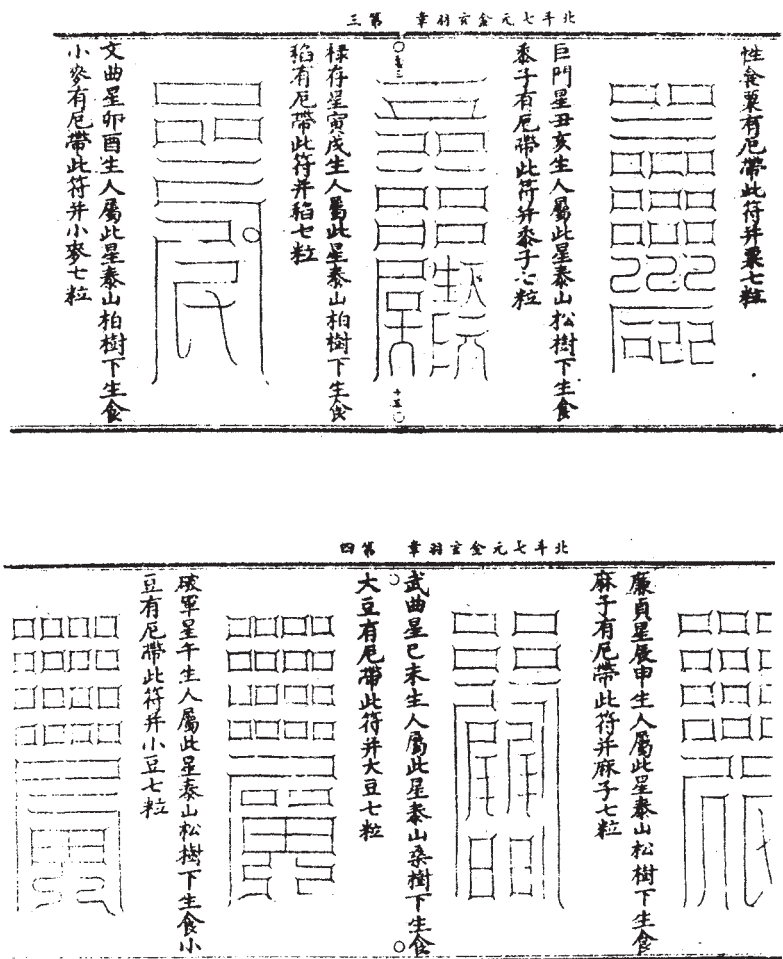 北斗七元金玄羽章　第三
性食粟有厄帶此符并粟七粒
巨門星丑亥生人屬此星泰山松樹下生食
黍子有厄帶此符并黍子七粒
祿存星寅戌生人屬此星泰山柏樹下生食
稻有厄帶此符并稻七粒
文曲星卯酉生人屬此星泰山柏樹下生食
小麥有厄帶此符并小麥七粒
北斗七元金玄羽章　第四
廉貞星辰申生人屬此星泰山松樹下生食
麻子有厄帶此符并麻子七粒
武曲星巳未生人屬此星泰山桑樹下生食
大豆有厄帶此符并大豆七粒
破軍星午生人屬此星泰山松樹下生食小
豆有厄帶此符并小豆七粒